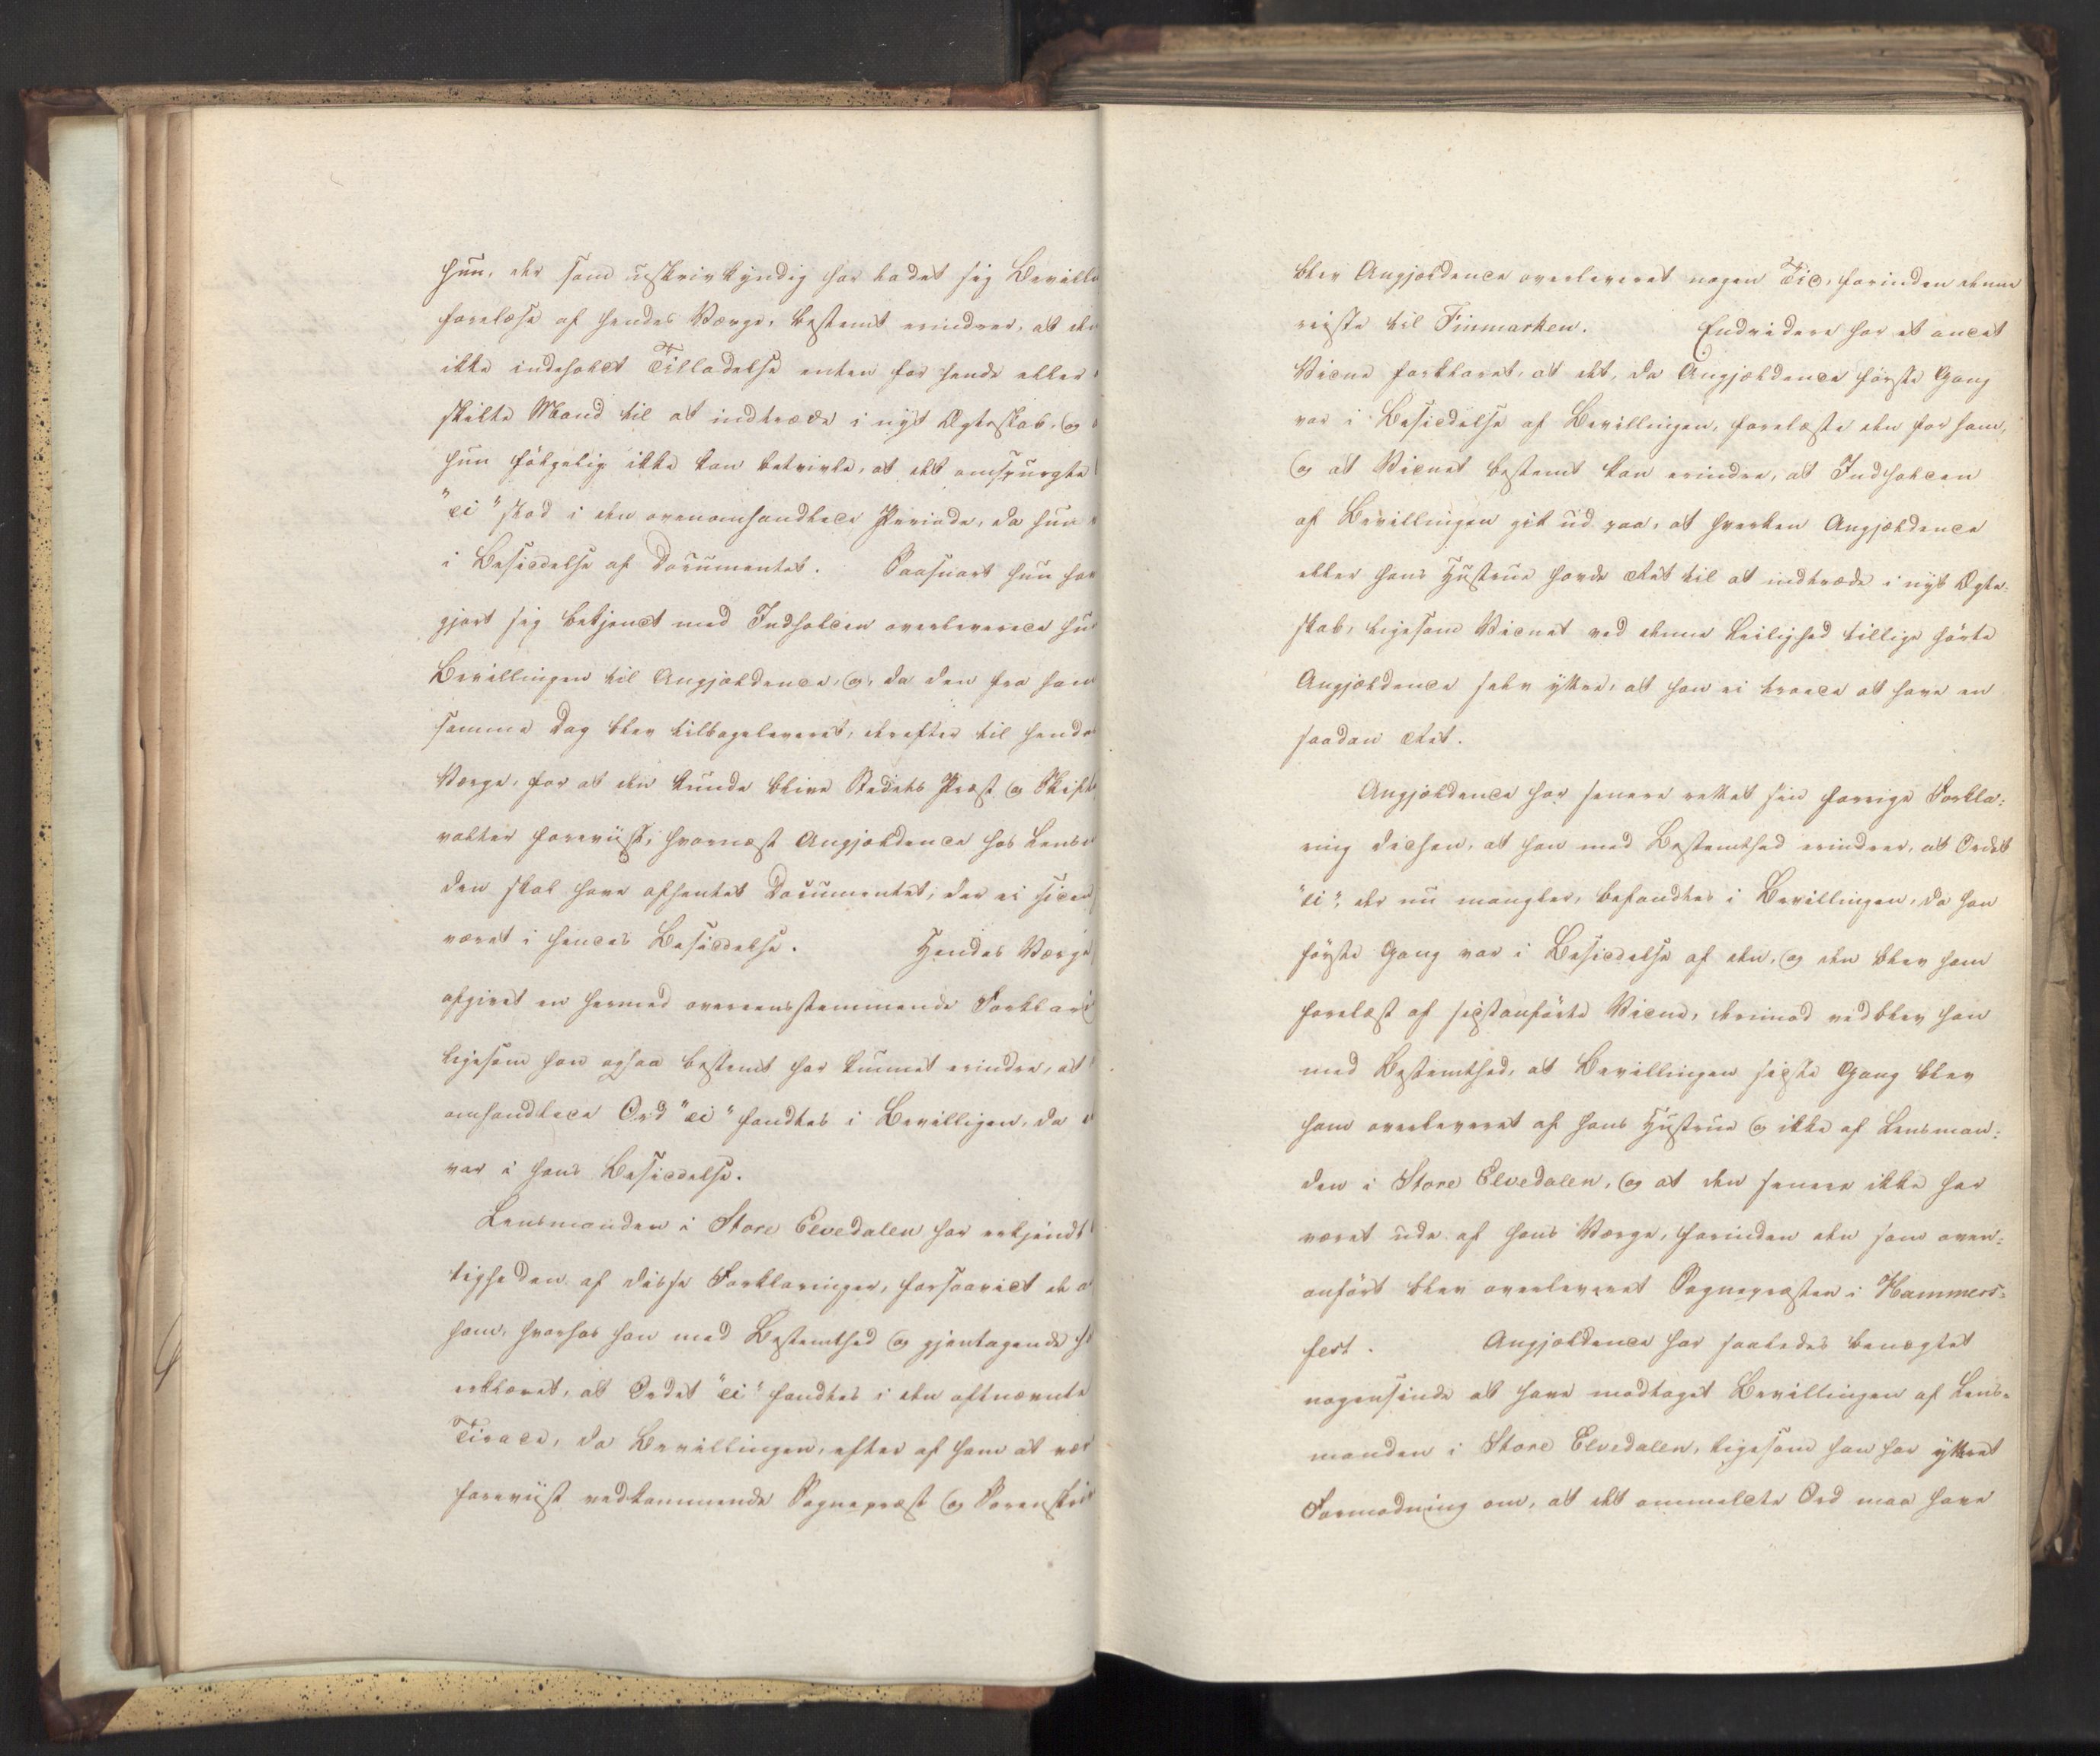 hun, der som uskrivkyndig har ladet sig Bevill
forelæse af hendes Værge, bestemt erindrer, at den
ikke indeholdt Tilladelse enten for hende eller
skilte Mand til at indtræde i nyt Ægteskab, og
hun følgelig ikke kan betvivle, at det omspurgte
"ei" stod i den ovenomhandlede Periode, da hun
i Besiddelse af Documentet. Saasnart hun har
gjort sig bekjendt med Indholden overleverede hun
Bevillingen til Angjældende, og, da den fra ham
samme Dag blev tilbageleveret, derefter til hendes
Værge, for at den kunde blive Stedets Præst og Skift
valter foreviist, hvornæst Angjældende hos Lens
den skal have afhentet Documentet, der ei siden
været i hendes Besiddelse. Hendes Værge
afgivet en hermed overeensstemmende Forklari
ligesom han ogsaa bestemt har kunnet erindre, at
omhandlede Ord "ei" fandtes i Bevilligen, da
var i hans Besiddelse.
Lensmanden i Store Elvedalen har erkjendt
tigheden af disse Forklaringer, forsaavidt de a
ham, hvorhos han med Bestemthed og gjentagende
erklæret, at Ordet "ei" fandtes i den oftnævnte
Tirade, da Bevillingen, efter af ham at vær
foreviist vedkommende Sognepræst og Sorenskri
blev Angjældende overleveret nogen Tid, forinden denne
reiste til Finmarken. Endvidere har et andet
Vidne forklaret, at det, da Angjældende første Gang
var i Besiddelse af Bevillingen, forelæste den for ham,
og at Vidnet bestemt kan erindre, at Indholden
af Bevillingen gik ud paa, at hverken Angjældende
eller hans Hustrue havde Ret til at indtræde i nyt Ægte-
skab, ligesom Vidnet ved denne Leilighed tillige hørte
Angjældende selv yttre, at han ei troede at have en
saadan Ret.
Angjældende har senere rettet sin forrige Forkla-
ring derhen, at han med Bestemthed erindrer, at Ordet
"ei", der nu mangler, befandtes i Bevillingen, da han
første Gang var i Besiddelse af den, og den blev ham
forelæst af sidstanførte Vidne, derimod vedblev han
med Bestemthed, at Bevillingen sidste Gang blev
ham overleveret af hans Hustrue og ikke af Lensman-
den i Store Elvedalen, og at den senere ikke har
været ude af hans Værge, forinden den som oven-
anført blev overleveret Sognepræsten i Hammer-
fest. Angjældende har saaledes benægtet
nogensinde at have modtaget Bevillingen af Lens-
manden i Store Elvedalen, ligesom han har yttret
Formodning om, at det ommeldte Ord maa have